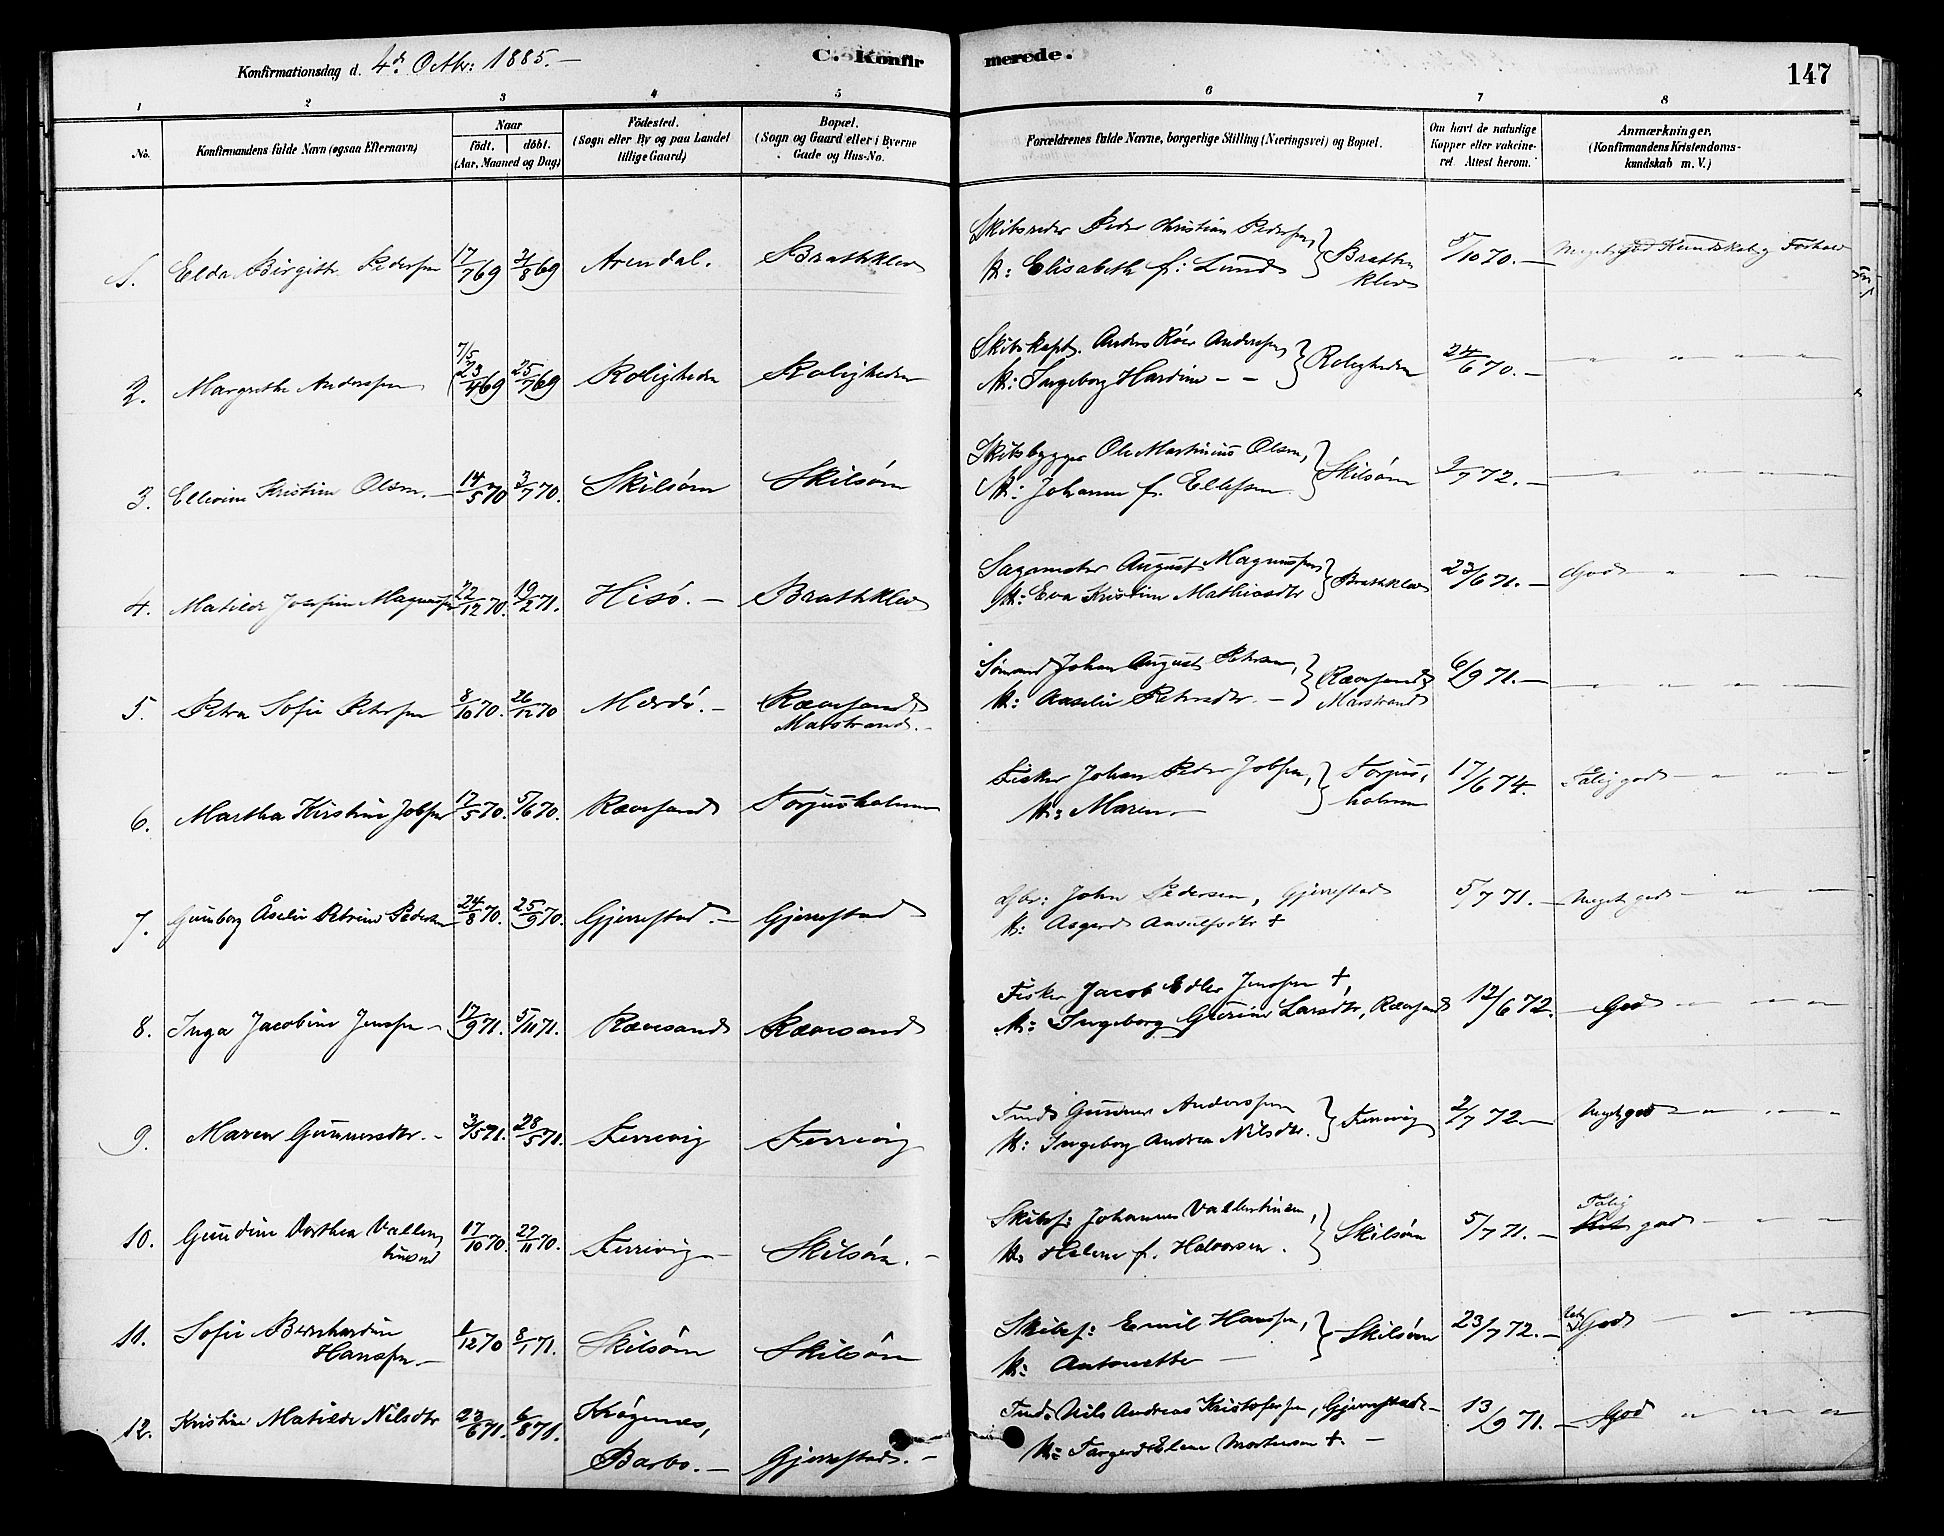 Konfirmationsdag d. 4de Octbr: 1885.—
C. Konfirmerede.
147
1 2 3 4 5 6 7 8
No.
Konfirmandens fulde Navn (ogsaa Efternavn)
Naar
født. døbt.
(Aar, Maaned og Dag)
Fødested.
(Sogn eller By og paa Landet
tillige Gaard)
Bopæl.
(Sogn og Gaard eller i Byerne
Gade og Hus-No.
Forældrenes fulde Navne, borgerlige Stilling (Næringsvei) og Bopæl.
Om havt de naturlige
Kopper eller vakcine-
ret. Attest herom.
Anmærkninger.
(Konfirmandens Kristendoms-
kundskab m. V.)
1. Elda Birgitte Pedersen 17/7 69 Arendal. Bratteklev
Skibsreder Peder Christian Pedersen,
H: Elisabeth f: Lund Bratteklev 5/10 70.— Meget god Kundskab og Forhold
2. Margrethe Anderssen 7/5 23/4 69 25/7 69 Roligheden Roligheden
Skibskapt. Anders Roer Anderssen
H: Ingeborg Hardine — — Roligheden 24/6 70.—
3. Ellevine Kristine Olsen.— 14/5 70 3/7 70. Skilsøen Skilsøen
Skibsbygger Ole Martinius Olsen,
H: Johanne f. Ellefsen Skilsøen 9/7 72.—
4. Matilde Josefine Magnussen 22/12 70. 19/2 71. Hisø.— Bratteklev
Sagmester August Magnussen
H: Eva Kristine Mathiasdtr Bratteklev 23/6 71.— God
5. Petra Sofie Peterssen 8/10 70. 26/12 70 Merdø.— Rævesand
Marstrand.—
Sømand Johan August Petersen,
H: Aaselie Petersdtr.— Rævesand
Marstrand 6/9 71.—
6. Martha Kirstine Jobsen 17/5 70. 5/6 70. Rævesand Torjusholmen
Fisker Johan Peder Jobsen,
H: Maren.— Torjusholmen 17/6 74. Tålig god
7. Gunborg Åselie Petrine Pedersen 24/8 70. 25/9 70. Gjerrestad.— Gjerrestad
Gbr: John Pedersen, Gjerrestad
H: Asgerd Aasulfsdtr † 5/7 71.— Meget god
8. Inga Jacobine Jenssen— 17/9 71. 5/11 71. Rævesand Rævesand
Fisker Jacob Edler Jenssen †,
H: Ingeborg Gurine Larsdtr, Rævesand 12/6 72. God
9. Maren Gunnersdtr.— 3/5 71. 28/5 71. Ferrevig Ferrevig
Tmd. Gunner Anderssen
H: Ingeborg Andrea Nilsdtr. Ferrevig 2/7 72.— Meget god
10. Gundine Dorthea Vallentinsen 17/10 70. 27/11 70. Ferrevig— Skilsøen.—
Skibsf: Johannes Vallentinsen,
H: Helene f. Halvorsen. Skilsøen 5/7 71.— Tålig god
11. Sofie Bernhardine
Hanssen.— 1/12 70 8/1 71. Skilsøen Skilsøen
Skibsf: Emil Hanssen,
H: Antonette — Skilsøen 23/7 72.— God
12. Kristine Matilde Nilsdtr 23/6 71. 6/8 71. Krøgenes,
Barbo.— Gjerrestad.—
Tmd. Nils Andreas Kristofersen, Gjerrestad—
H: Targerd Elene Mortensen †.— 13/9 71.— God